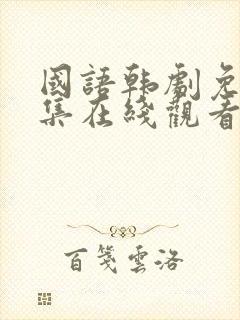 國語韩劇免
集在綫觀看
百箋雲洛